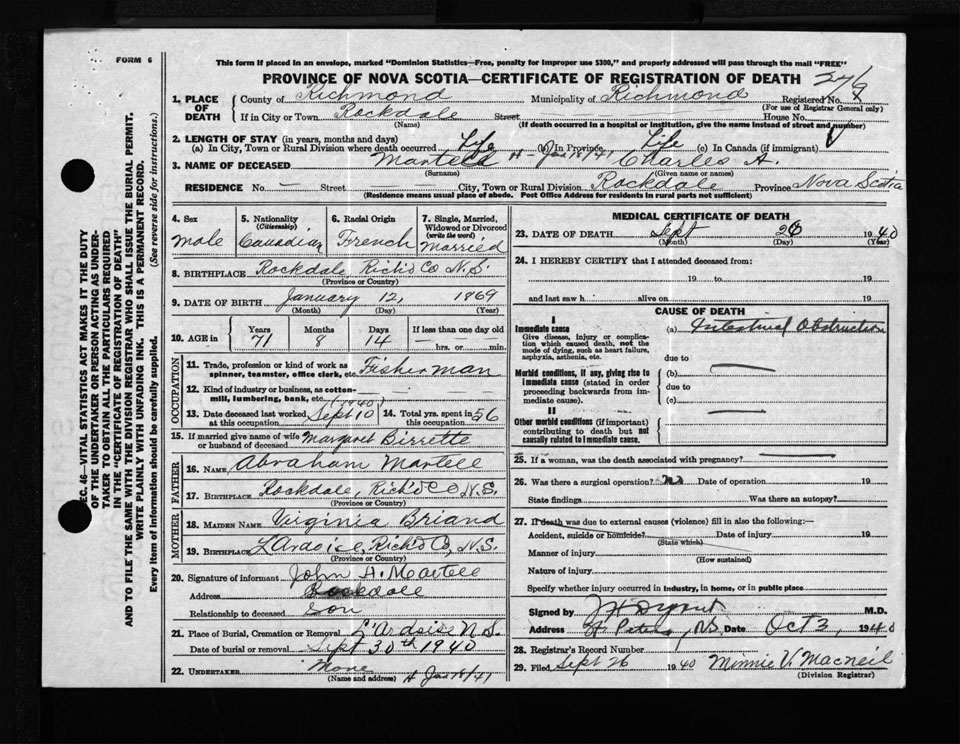 FORM 6
This form if placed in an envelope, marked "Dominion Statistics—Free, penalty for improper use $300," and properly addressed will pass through the mail "FREE"
PROVINCE OF NOVA SCOTIA—CERTIFICATE OF REGISTRATION OF DEATH
1. PLACE OF DEATH County of Richmond Municipality of Richmond Registered No.
(For use of Registrar General only)
If in City or Town Rockdale Street House No.
(Name) (If death occurred in a hospital or institution, give the name instead of street and number)
2. LENGTH OF STAY (in years, months and days)
(a) In City, Town or Rural Division where death occurred Life (b) In Province Life (c) In Canada (if immigrant)
3. NAME OF DECEASED Martell H - Jan 18/41 Charles A.
(Surname) (Given name or names)
RESIDENCE No. — Street — City, Town or Rural Division Rockdale Province Nova Scotia
(Residence means usual place of abode. Post Office Address for residents in rural parts not sufficient)
4. Sex 5. Nationality (Citizenship) 6. Racial Origin 7. Single, Married, Widowed or Divorced (write the word)
male Canadian French Married
8. BIRTHPLACE Rockdale Rich'd Co N.S.
(Province or Country)
9. DATE OF BIRTH January 12, 1869
(Month) (Day) (Year)
10. AGE in Years Months Days If less than one day old
71 8 14 — hrs. or — min.
OCCUPATION
11. Trade, profession or kind of work as spinner, teamster, office clerk, etc. Fisherman
12. Kind of industry or business, as cotton-mill, lumbering, bank, etc.
13. Date deceased last worked at this occupation Sept 10 (1940) 14. Total yrs. spent in this occupation 56
15. If married give name of wife or husband of deceased Margaret Birrette
FATHER
16. NAME Abraham Martell
17. BIRTHPLACE Rockdale, Rich'd Co N.S.
(Province or Country)
MOTHER
18. MAIDEN NAME Virginia Briand
19. BIRTHPLACE L'Ardoise, Rich'd Co, N.S.
(Province or Country)
20. Signature of informant John A. Martell
Address Rockdale
Relationship to deceased Son
21. Place of Burial, Cremation or Removal L'Ardoise N.S.
Date of burial or removal Sept 30th 1940
22. UNDERTAKER None
(Name and address) H Jan 18/41
MEDICAL CERTIFICATE OF DEATH
23. DATE OF DEATH Sept 26 1940
(Month) (Day) (Year)
24. I HEREBY CERTIFY that I attended deceased from:
19 to 19
and last saw h alive on 19
CAUSE OF DEATH
I
Immediate cause (a) Intestinal Obstruction
Give disease, injury or complication which caused death, not the mode of dying, such as heart failure, asphyxia, asthenia, etc.
due to
Morbid conditions, if any, giving rise to immediate cause (stated in order proceeding backwards from immediate cause).
(b)
due to
(c)
II
Other morbid conditions (if important) contributing to death but not causally related to immediate cause.
25. If a woman, was the death associated with pregnancy?
26. Was there a surgical operation? no Date of operation 19
State findings Was there an autopsy?
27. If death was due to external causes (violence) fill in also the following:—
Accident, suicide or homicide? Date of injury 19
(State which)
Manner of injury
(How sustained)
Nature of injury
Specify whether injury occurred in industry, in home, or in public place
Signed by M.D.
Address St Peters, N.S. Date Oct 3, 1940
28. Registrar's Record Number
29. Filed Sept 26 1940 Minnie V. Macneil
(Division Registrar)
SEC. 46—VITAL STATISTICS ACT MAKES IT THE DUTY
OF THE UNDERTAKER OR PERSON ACTING AS UNDER-
TAKER TO OBTAIN ALL THE PARTICULARS REQUIRED
IN THE "CERTIFICATE OF REGISTRATION OF DEATH"
AND TO FILE THE SAME WITH THE DIVISION REGISTRAR WHO SHALL ISSUE THE BURIAL PERMIT.
WRITE PLAINLY WITH UNFADING INK. THIS IS A PERMANENT RECORD.
Every item of information should be carefully supplied. (See reverse side for instructions.)